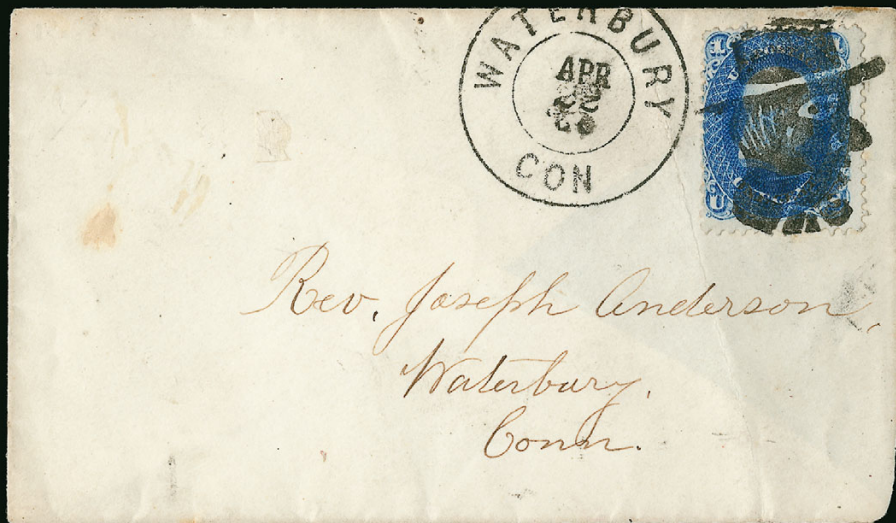 WATERBURY
APR
22
CON
1 1
U
Rev. Joseph Anderson,
Waterbury.
Conn.